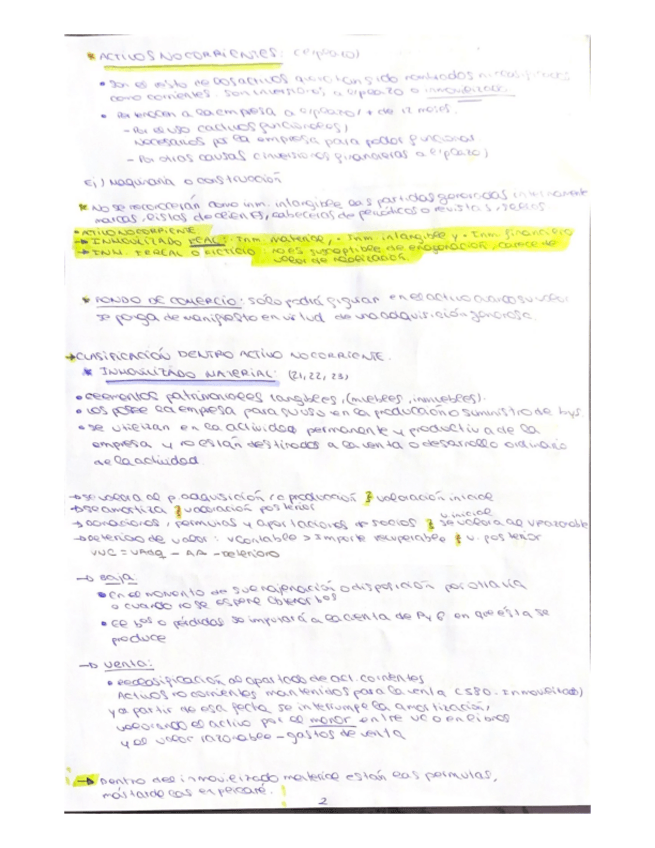 * ACTIVOS NO CORRIENTES: (l/plazo)
• Son el resto de los activos que no han sido nombrados ni clasificados
como corrientes. Son inversiones a l/plazo o inmovilizado.
• Pertenecen a la empresa a l/plazo / + de 12 meses.
- Por el uso (activos funcionales)
necesarios por la empresa para poder funcionar
- Por otras causas (inversiones financieras a l/plazo)
Ej) Maquinaria o construcción
* No se reconocerán como inm. intangible las partidas generadas internamente
marcas, listas de clientes, cabeceras de periódicos o revistas, sellos
• ACTIVO NO CORRIENTE
→ INMOVILIZADO REAL: • Inm. material, • Inm. intangible y • Inm. financiero
→ INM. IRREAL O FICTICIO: no es susceptible de enajenación, carece de
valor de realización.
* FONDO DE COMERCIO: solo podrá figurar en el activo cuando su valor
se ponga de manifiesto en virtud de una adquisición onerosa.
→ CLASIFICACIÓN DENTRO ACTIVO NO CORRIENTE.
* INMOVILIZADO MATERIAL: (21, 22, 23)
• elementos patrimoniales tangibles, (muebles, inmuebles).
• los posee la empresa para su uso en la producción o suministro de bys.
• se utilizan en la actividad permanente y productiva de la
empresa y no están destinados a la venta o desarrollo ordinario
de la actividad
→ se valora al p. adquisición / c. producción } valoración inicial
→ se amortiza } valoración posterior
v. inicial
→ Donaciones, permutas y aportaciones de socios } se valora al v. razonable
→ Deterioro de valor: v contable > Importe recuperable } v. posterior
VNC = VAdq - AA - deterioro
→ Baja.
• En el momento de su enajenación o disposición por otra vía
o cuando no se espere obtener bos
• El bo o pérdidas se imputará a la cuenta de P y G en que ésta se
produce
→ Venta:
• Reclasificación al apartado de act. corrientes
Activos no corrientes mantenidos para la venta (580. Inmovilizado)
y a partir de esa fecha se interrumpe la amortización,
valorando el activo por el menor entre VC o en libros
y el valor razonable - gastos de venta
→ Dentro del inmovilizado material están las permutas,
más tarde las explicaré.
2